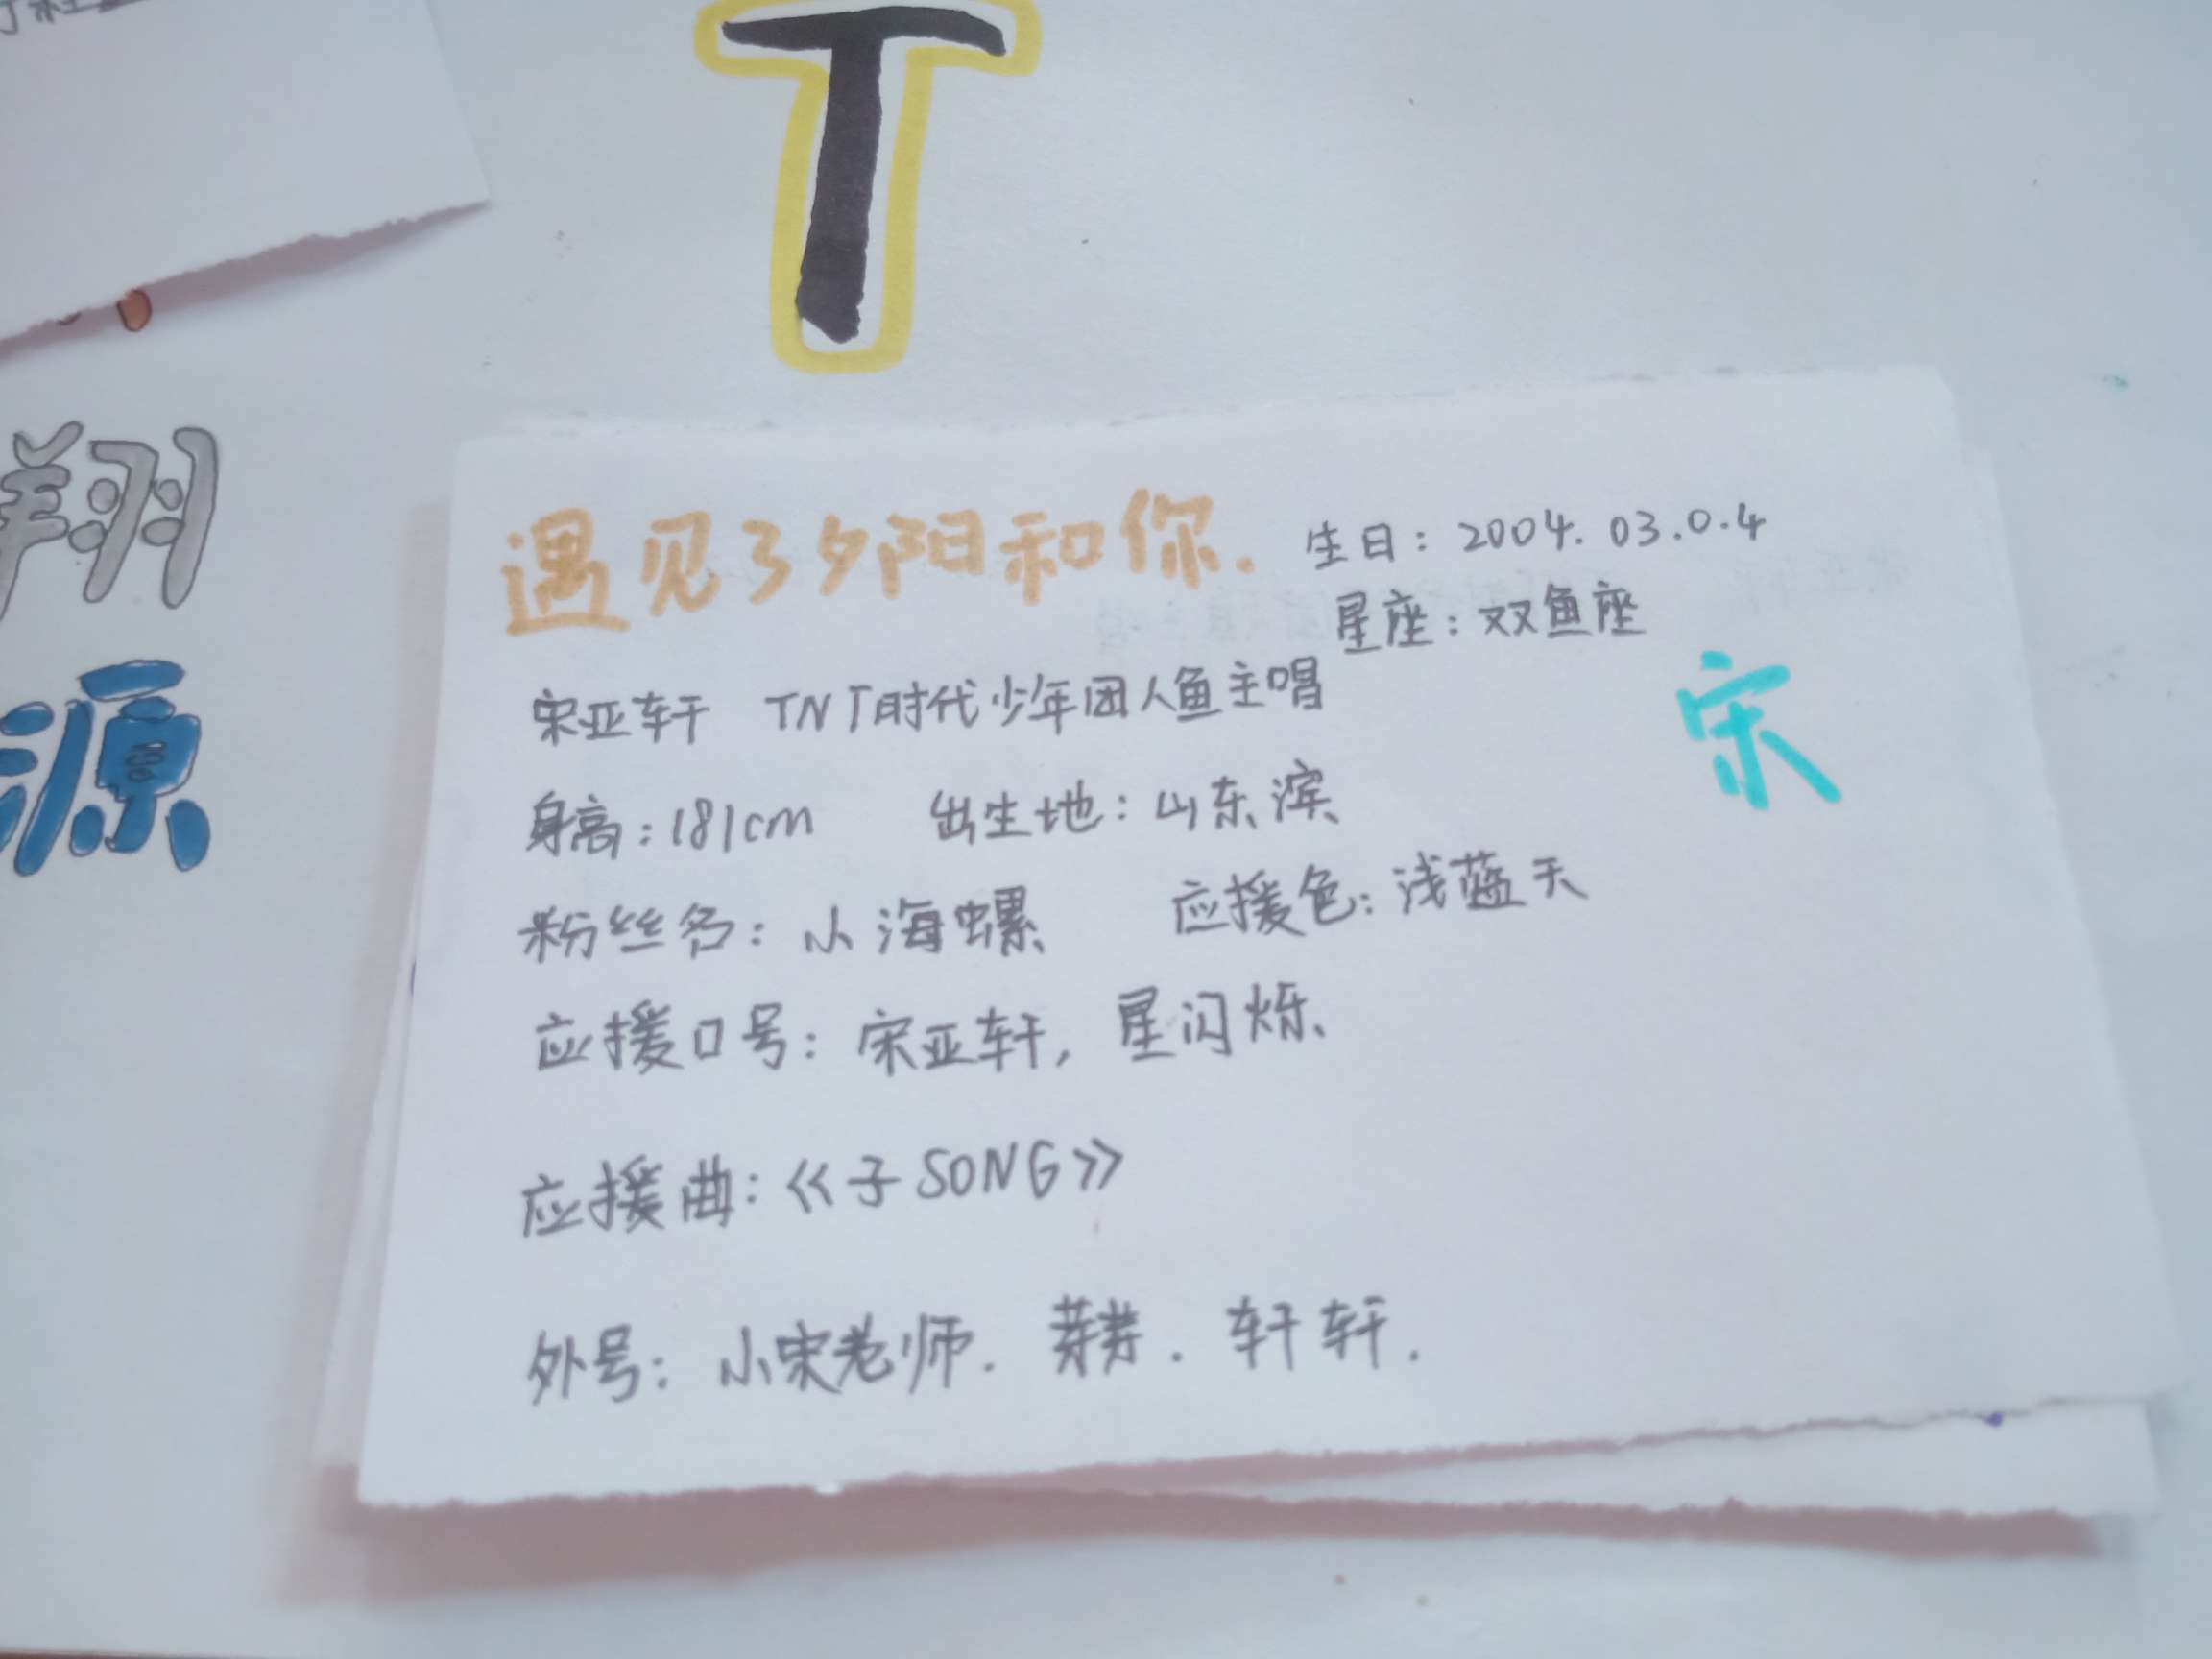 T
翔
源
遇见了夕阳和你.
生日：2004.03.0.4
星座：双鱼座
宋
宋亚轩 TNT时代少年团人鱼主唱
身高：181cm 出生地：山东滨
粉丝名：小海螺 应援色：浅蓝天
应援口号：宋亚轩，星闪烁、
应援曲：《子SONG》
外号：小宋老师. 芽芽. 轩轩.